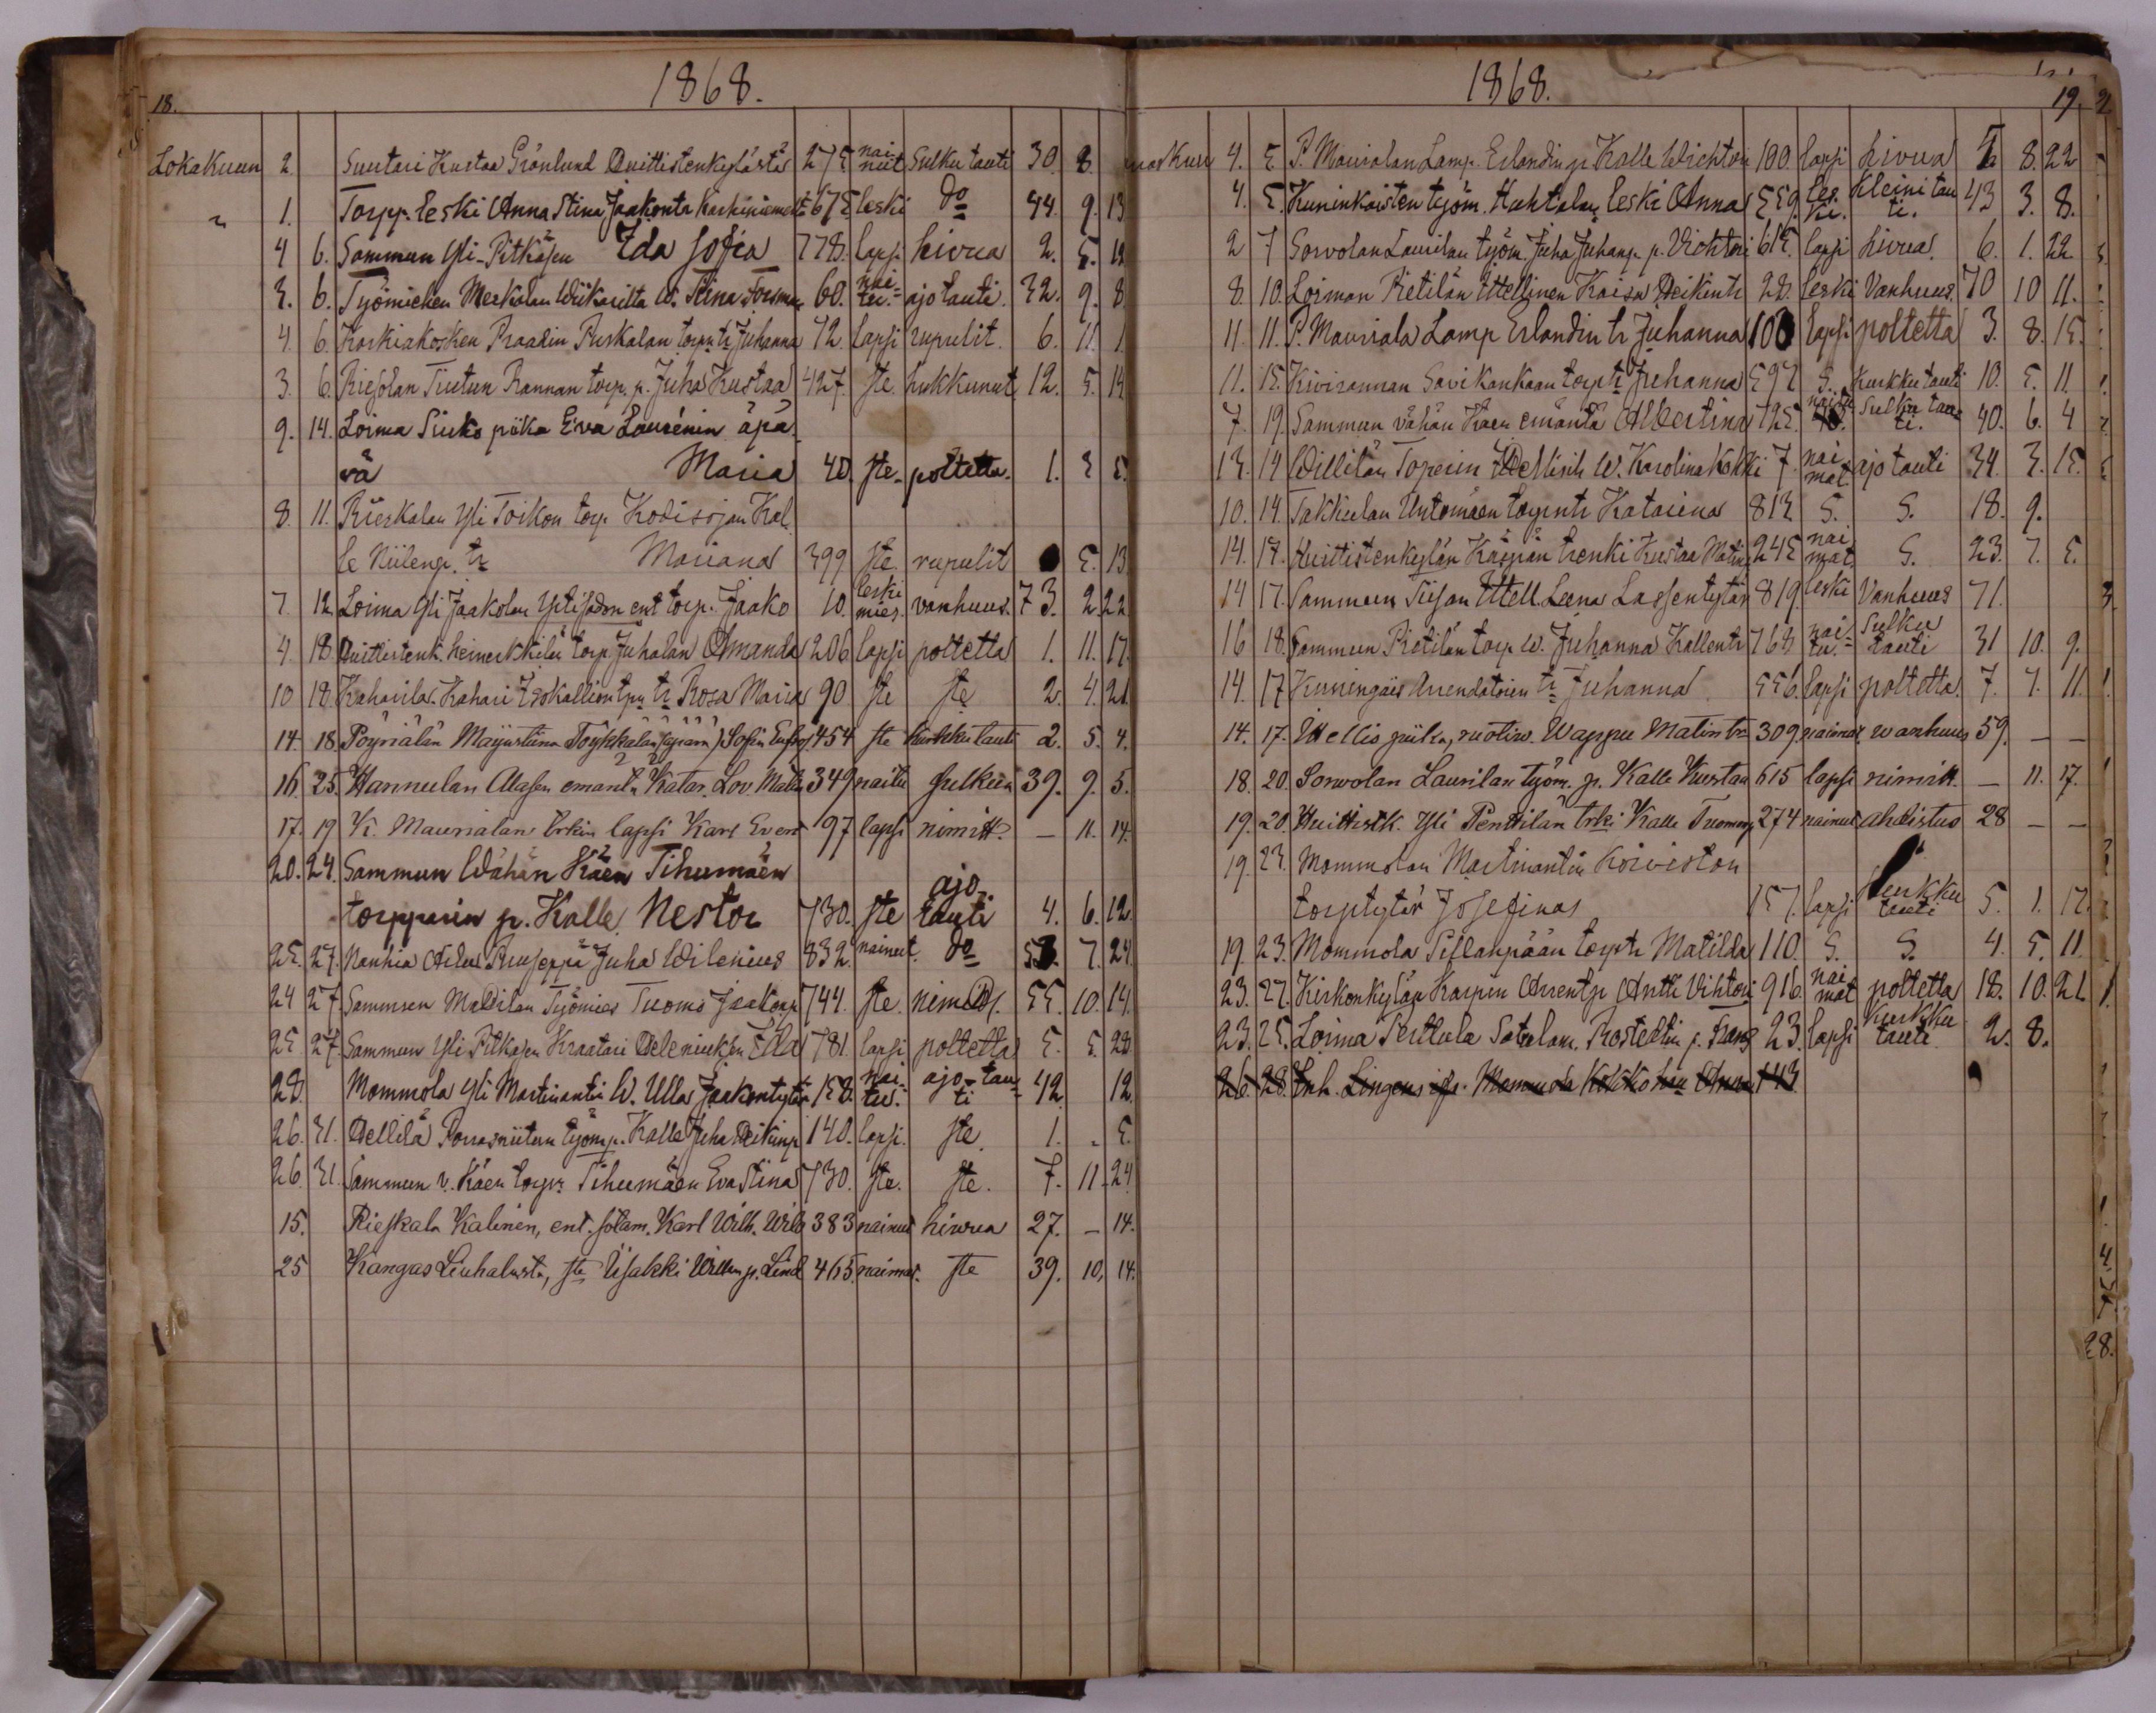 18.
1868.
Lokakuun 2. Suutari Kustaa Grönlund Huittistenkylästä 275 nainut Sulku tauti 30. 8.
" 1. Torpp. leski Anna Stina Jaakonta 675 leski do 44. 9. 13
4 6. Sammun Yli-Pitkäsen Ida Sofia 778. lapsi hivua 2. 5. 12
3. 6. Työmiehen Merkolan W. Stina Forsman 60. naitu. ajotauti. 32. 9. 8
4. 6. Korkiakosken Praadin Purkalan torp. tr Juhanna 72. lapsi rupulit. 6. 11. 1.
3. 6. Riesolan Tuutun Rannan torp. p. Juha Kustaa 427. ste. hukkunut 12. 5. 14
9. 14. Loima Siuko piika Eva Laurénin äpä-
rä Maria 40. ste. poltetta. 1. 3 5.
8. 11. Rieskalan Yli Toikon torp. Kodisojan Kal
le Niilenp. tr Mariana 399 ste. rupulit 5. 13
7. 12. Loima Yli Jaakolan ent torp. Jaako 10. leski mies. vanhuus. 73. 2. 22
4. 18. Huittistenk. heinerkkilä torp. Juhalan Amanda 206 lapsi poltetta 1. 11. 17.
10 18. Kaharila Kahari Isokallion tpn tr Rosa Maria 90 ste ste 2. 4. 21
14. 18. Pöyriälän Maijastiina Töykkälän (äpärä) Sofia Eufros. 454 ste kurkkutauti 2. 5. 4.
16. 25. Hannulan Alasen emäntä Katar. Lov. Matin 349 naitu sulkua 39. 9. 5.
17. 19 K. Maurialan trkin lapsi Karl Evert 97 lapsi nimitt. — 11. 14.
20. 24. Sammun Wähän Käen Tihumäen
torpparin p. Kalle Nestor 730. ste ajotauti 4. 6. 12.
25. 27. Nanhia Ruseppä Juha Wilenius 832. nainut. do 53. 7. 24
24 27 Sammun Mattilan Työmies Tuomo Jaakonp 744. ste. 55. 10. 14.
25. 27. Sammun Yli Pitkäsen Kraatari Heleniuksen Ida 781. lapsi poltetta 5. 5. 28
28. Mommola Yli Martinantin W. Ulla Jaakontytär 158. naitu. ajo-tauti 42. 12.
26. 31. Hellilä Porrasniitun työm p. Kalle Juha Heikinp 140. lapsi. ste 1. " 5.
26. 31. Sammun v. Käen torpr Tihumäen Eva Stina 730. ste. ste. 7. 11. 24
15. Rieskala Kalinen, ent. sotam. Karl Wilh. 383 nainut hivua 27. — 14.
25 Kangas Liuhalasta, ste Iisakki Willen p. Lind 465. naimat. ste 39. 10. 14.
1868.
19.
4. 5. P. Maurialan Lamp. Erlandin p Kalle Wichtori 100. lapsi hivua 8. 22
4. 5. Kuninkaisten työm. Huhtalan leski Anna 559. leski. Kleinitauti. 43 3. 8.
2 7 Sorvolan Laurilan työm. Juha Juhanp. p. Vichtori 615. lapsi hivua. 6. 1. 22
8. 10. Loiman Pietilän Ittellinen Kaisa Heikintr 28. leski Vanhuus. 70 10 11.
11. 11. P. Mauriala Lamp Erlandin tr Juhanna 100 lapsi poltetta 3. 8. 15.
11. 15. Kivirannan Savikankaan torp tr Juhanna 592 S. Kurkku tauti 10. 5. 11.
7. 19. Sammun vähän Käen emäntä Albertina 725. naitu Sulku tauti. 40. 6. 4
13. 14 Willilän Topein W. Karolina Kokki 7. naimat. ajotauti 34. 3. 15.
10. 14. Takkulan Untomäen torpintr Katarina 813. S. S. 18. 9.
14. 17. Huittistenkylän Käspän trenki Kustaa Matinp 245 naimat. S. 23. 7. 5.
14 17. Sammun Tiisan Ittell. Leena Lassentytär 819 leski Vanhuus 71.
16 18. Sammun Pietilän torp w. Juhanna Kallentr 768 naitu. Sulku tauti 31 10. 9.
14. 17 Kuningais Arrendatorin tr Juhanna 556. lapsi poltetta. 7. 7. 11.
14. 17. Itellis piika, ruotiw. Wappu Matintr 309 naimat. wanhuus 59. — —
18. 20. Sorvolan Laurilan työm. p. Kalle Kustaa 615 lapsi nimitt. — 11. 17.
19. 20. Huittistk. Yli Penttilän trki Kalle Tuomonp 274 nainut ahdistus 28 — —
19. 23. Mommolan Martinantin Koiviston
torptytär Josefina 157. lapsi Kurkku tauti 5. 1. 12.
19. 23. Mommola Sillanpään torptr Matilda 110. S. S. 4. 5. 11.
23. 27. Kirkonkylän Karpin Arrent p Antti Vihtori 916. naimat poltetta 18. 10. 21.
23. 25. Loima Perttula Satulam. p. Frans 23. lapsi Kurkku tauti 2. 8.
26. 28. Inh. Mommola Anna 143
28.